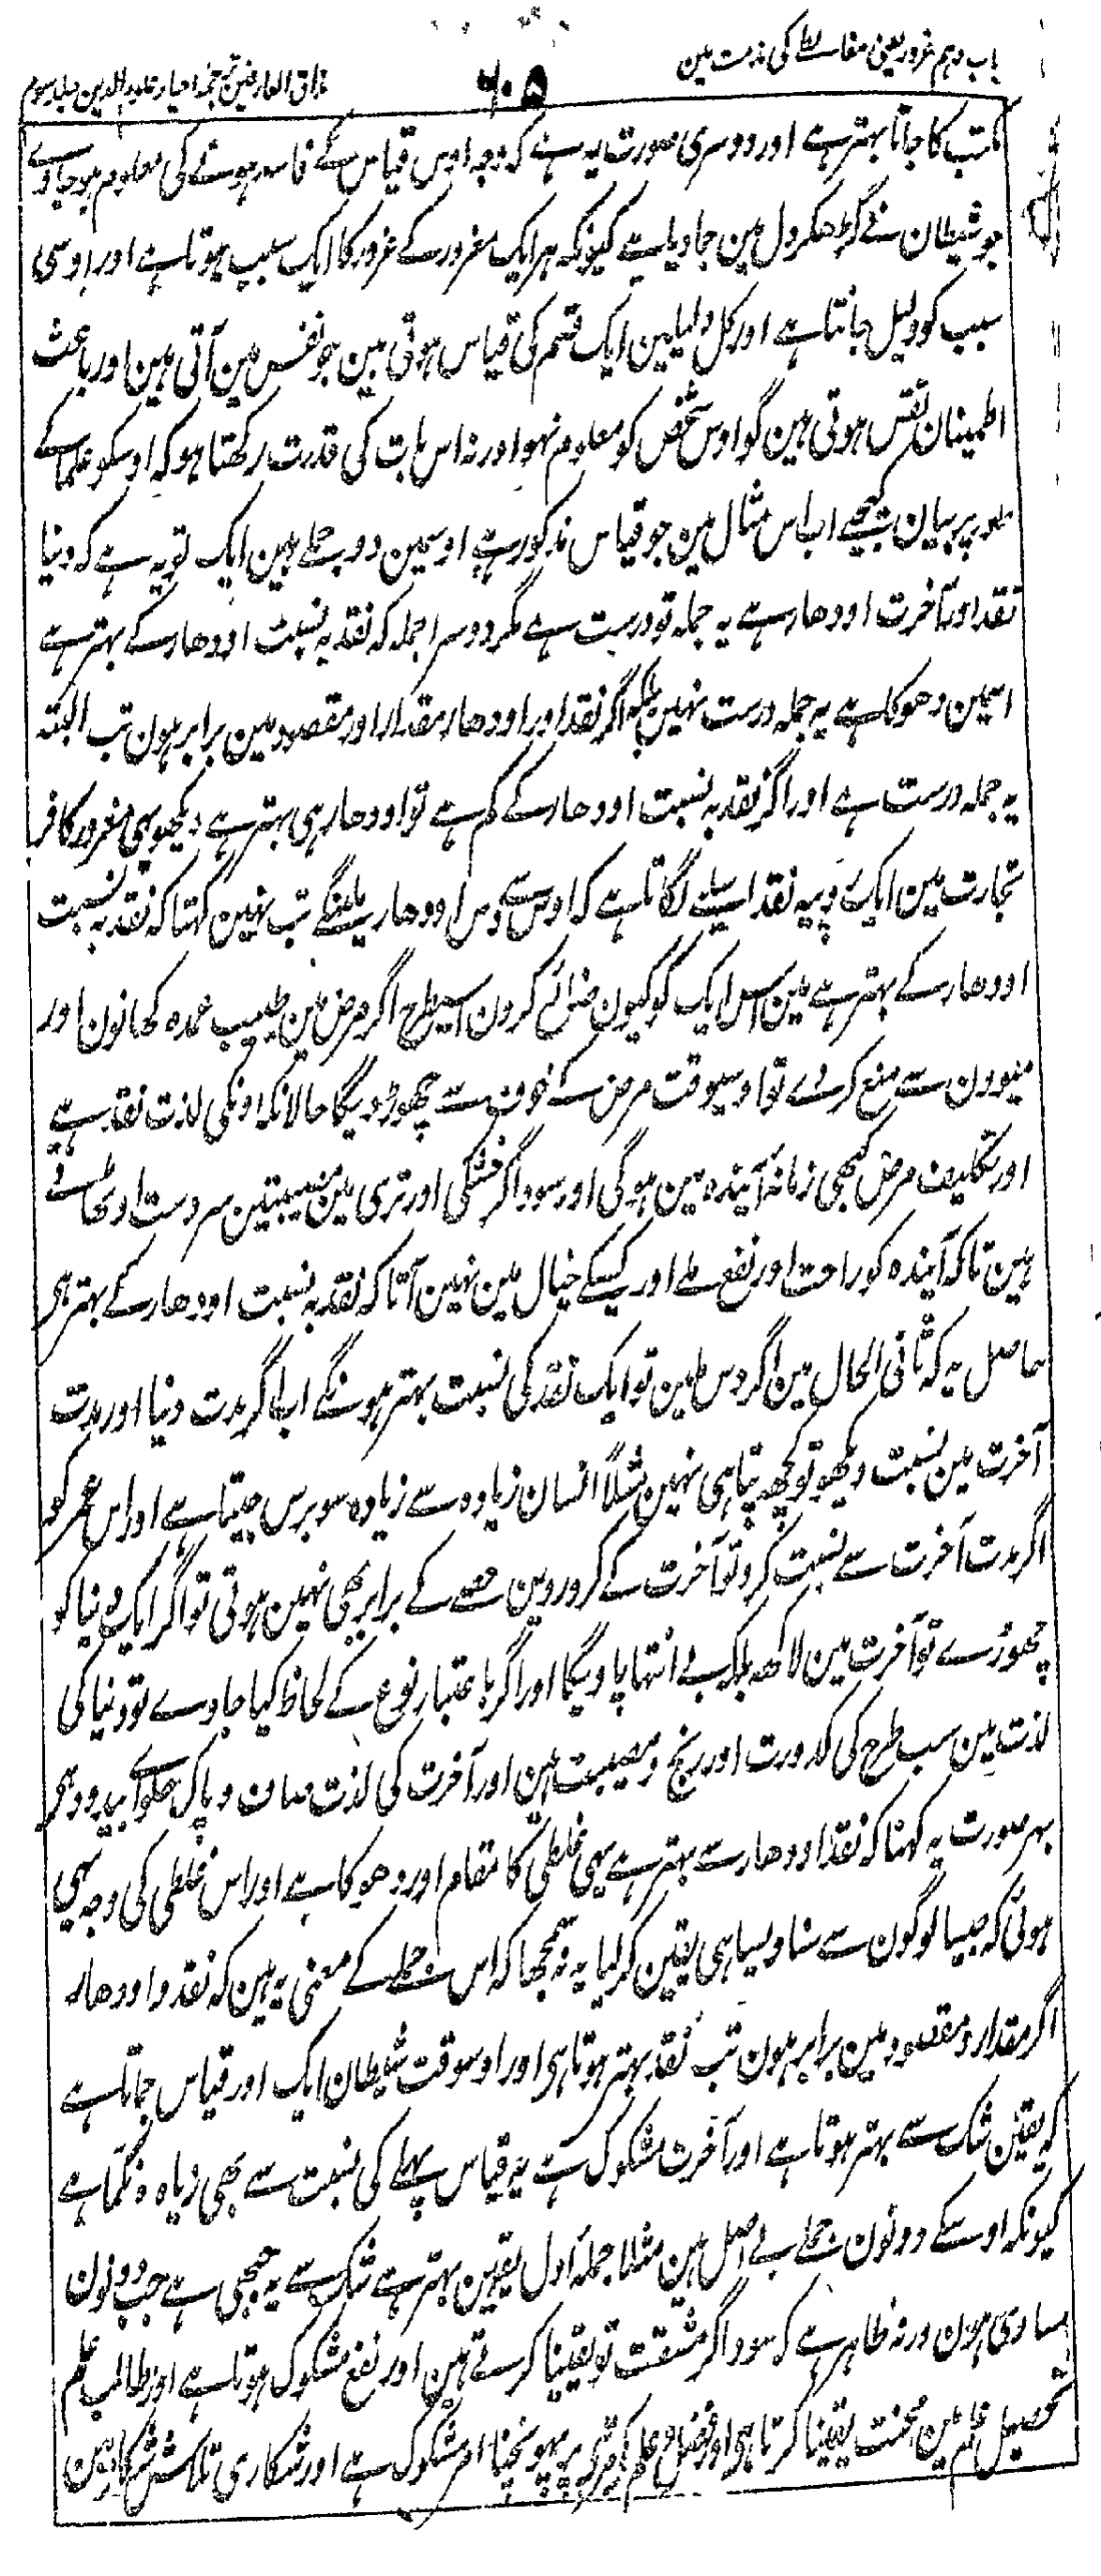 باب دہم غرور یعنی مغالطے کی مذمت مین
۶۰۵
مذاق العارفین ترجمہ احیاء علوم الدین جلد سوم
مکتب کا جانا بہتر ہے اور دوسری صورت یہ ہے کہ وجہ اوس قیاس کے فاسد ہونے کی معلوم ہو جاوے
جو شیطان نے گڑھکر دل مین جما دیا ہے کیونکہ ہر ایک مغرور کے غرور کا ایک سبب ہوتا ہے اور اوسی
سبب کو دلیل جانتا ہے اور کل دلیلین ایک قسم کی قیاس ہوتی ہین جو نفس مین آتی ہین اور باعث
اطمینان نفس ہوتی ہین گو اوس شخص کو معلوم نہو اور نہ اس بات کی قدرت رکھتا ہو کہ اوسکو علما کے
طور پر بیان کیجیے اب اس مثال مین جو قیاس مذکور ہے اوسمین دو جملے ہین ایک تو یہ ہے کہ دنیا
نقد اور آخرت اودھار ہے یہ جملہ تو درست ہے مگر دوسرا جملہ کہ نقد بہ نسبت اودھار کے بہتر ہے
اسمین دھوکا ہے یہ جملہ درست نہین بلکہ اگر نقد اور اودھار مقدار اور مقصود مین برابر ہون تب البتہ
یہ جملہ درست ہے اور اگر نقد بہ نسبت اودھار کے کم ہے تو اودھار ہی بہتر ہے دیکھو یہی مغرور کافر
تجارت مین ایک روپیہ نقد اسلیے لگاتا ہے کہ اوس سے دس اودھار ملینگے تب نہین کہتا کہ نقد بہ نسبت
اودھار کے بہتر ہے مین اس ایک کو کیون ضائع کرون اسیطرح اگر مرض مین طبیب عمدہ کھانون اور
میوون سے منع کر دے تو اوسیوقت مرض کے خوف سے چھوڑ دیگا حالانکہ اونکی لذت نقد ہے
اور تکلیف مرض کبھی زمانہ آیندہ مین ہوگی اور سوداگر خشکی اور تری مین مصیبتین سردست اوٹھاتے
ہین تاکہ آیندہ کو راحت اور نفع ملے اور کسیکے خیال مین نہین آتا کہ نقد بہ نسبت اودھار کے بہتر ہی
حاصل یہ کہ ثانی الحال مین اگر دس ملین تو ایک نقد کی نسبت بہتر ہونگے اب اگر مدت دنیا اور مدت
آخرت مین نسبت دیکھو تو کچھ پتا ہی نہین مثلاً انسان زیادہ سے زیادہ سو برس جیتا ہے اور اس عمر کو
اگر مدت آخرت سے نسبت کرو تو آخرت کے کرورویں حصے کے برابر بھی نہین ہوتی تو اگر ایک دنیا کو
چھوڑے تو آخرت مین لاکھہ بلکہ بے انتہا پاویگا اور اگر باعتبار نوع کے لحاظ کیا جاوے تو دنیا کی
لذت مین سب طرح کی کدورت اور رنج و مصیبت ہین اور آخرت کی لذت صاف و پاک
بہر صورت یہ کہنا کہ نقد اودھار سے بہتر ہے یہی غلطی کا مقام اور دھوکا ہے اور اس غلطی کی وجہ یہی
ہوئی کہ جیسا لوگون سے سنا ویسا ہی یقین کر لیا یہ نہ سمجھا کہ اس جملے کے معنی یہ ہین کہ نقد و اودھار
اگر مقدار و مقصود مین برابر ہون تب نقد بہتر ہوتا ہی اور اوسوقت شیطان ایک اور قیاس جماتا ہے
کہ یقین شک سے بہتر ہوتا ہے اور آخرت مشکوک ہے یہ قیاس پہلے کی نسبت سے بھی زیادہ نکما ہے
کیونکہ اوسکے دونون جملے بے اصل ہین مثلا جملہ اول یقین بہتر ہے شک سے یہ جبھی ہے جب دونون
مساوی ہون ورنہ ظاہر ہے کہ سوداگر مشقت تو یقینا کرتے ہین اور نفع مشکوک ہوتا ہے اور طالب علم
تحصیل علم مین محنت یقینا کرتا ہی اور فضل و علم کے مرتبہ پر پہونچنا امر مشکوک ہے اور شکاری تلاش شکار مین